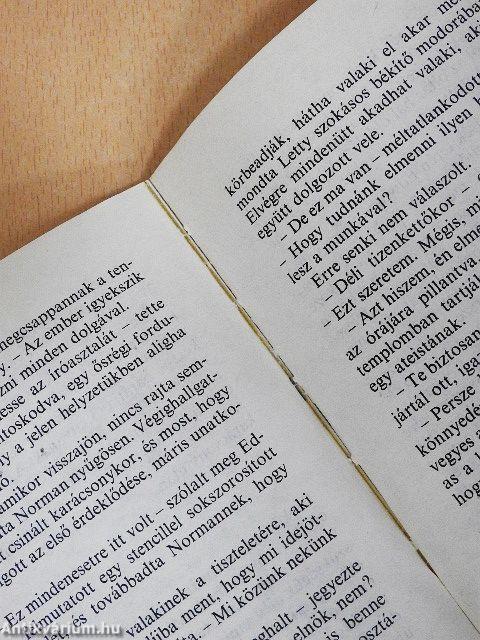 negcsappannak a ten-
Az ember igyekszik
minden dolgával.
esse az íróasztalát – tette
itoskodva, egy ősrég fordu-
a jelen helyzetükben aligha
amikor visszajön, nincs rajta sem-
Norman nyűgösen. Végighallgat-
csinált karácsonykor, és most, hogy
az első érdeklődése, máris unatko-
Ez mindenesetre itt volt – szólalt meg Ed-
mutatott egy stencillel sokszorosított
és továbbadta Normannek, hogy
valakinek a tiszteletére, aki
ment, hogy mi idejöt-
– Mi közünk nekünk
– jegyezte
elnök, nem?
is benne
körbeadják, hátha valaki el akar me
mondta Letty szokásos békítő modorába
Elvégre mindenütt akadhat valaki, ak
együtt dolgozott vele.
– De ez ma van – méltatlankodott
– Hogy tudnánk elmenni ilyen h
lesz a munkával?
Erre senki nem válaszolt.
– Déli tizenkettőkor –
– Ezt szeretem. Mégis, mi
– Azt hiszem, én elme
az órájára pillantva
templomban tartják
egy ateistának.
– Te biztosan
jártál ott, igaz
– Persze
könnyedé
vegyes a
as a l
hog
Antikvarium.hu